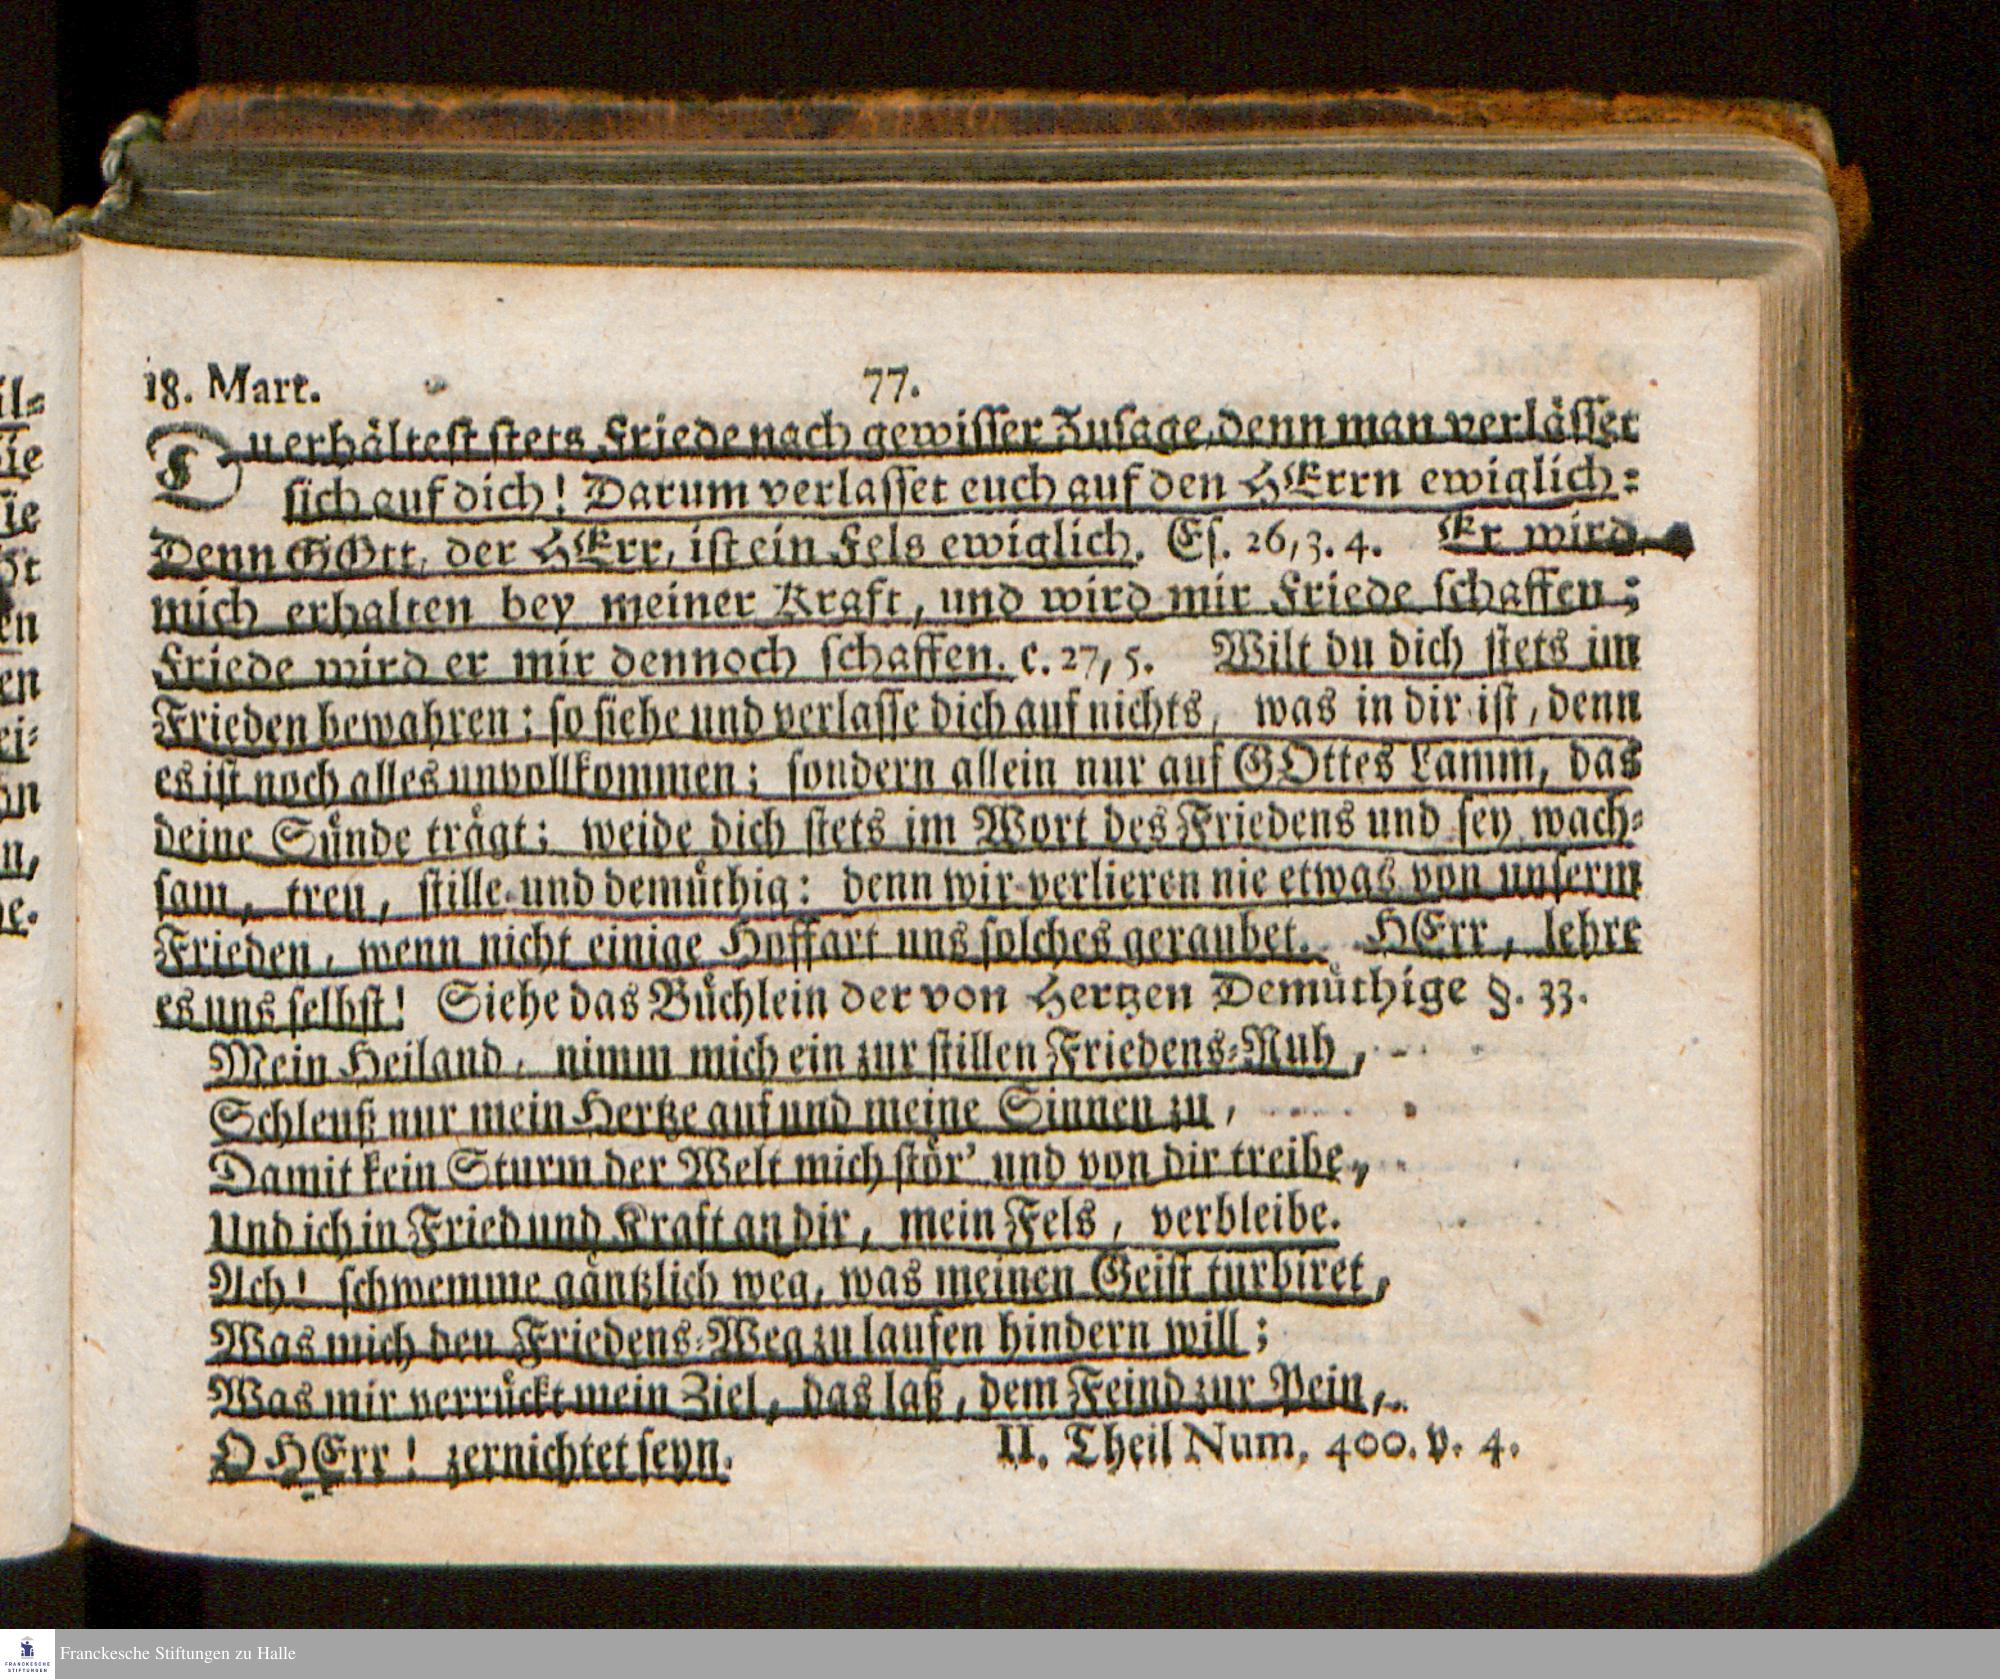 18. Mart. 77.
Du erhältest stets Friede nach gewisser Zusage, denn man verlässet
sich auf dich! Darum verlasset euch auf den HErrn ewiglich:
Denn GOtt, der HErr, ist ein Fels ewiglich. Es. 26, 3. 4. Er wird
mich erhalten bey meiner Kraft, und wird mir Friede schaffen;
Friede wird er mir dennoch schaffen. c. 27, 5. Wilt du dich stets im
Frieden bewahren: so siehe und verlasse dich auf nichts, was in dir ist, denn
es ist noch alles unvollkommen; sondern allein nur auf GOttes Lamm, das
deine Sünde trägt; weide dich stets im Wort des Friedens und sey wach-
sam, treu, stille und demüthig: denn wir verlieren nie etwas von unserm
Frieden, wenn nicht einige Hoffart uns solches geraubet. HErr, lehre
es uns selbst! Siehe das Büchlein der von Hertzen Demüthige §. 33.
Mein Heiland, nimm mich ein zur stillen Friedens-Ruh,
Schleuß nur mein Hertze auf und meine Sinnen zu,
Damit kein Sturm der Welt mich stör' und von dir treibe,
Und ich in Fried und Kraft an dir, mein Fels, verbleibe.
Ach! schwemme gäntzlich weg, was meinen Geist turbiret,
Was mich den Friedens-Weg zu laufen hindern will;
Was mir verrückt mein Ziel, das laß, dem Feind zur Pein,
O HErr! zernichtet seyn. II. Theil Num. 400. v. 4.
FRANCKESCHE
STIFTUNGEN
Franckesche Stiftungen zu Halle